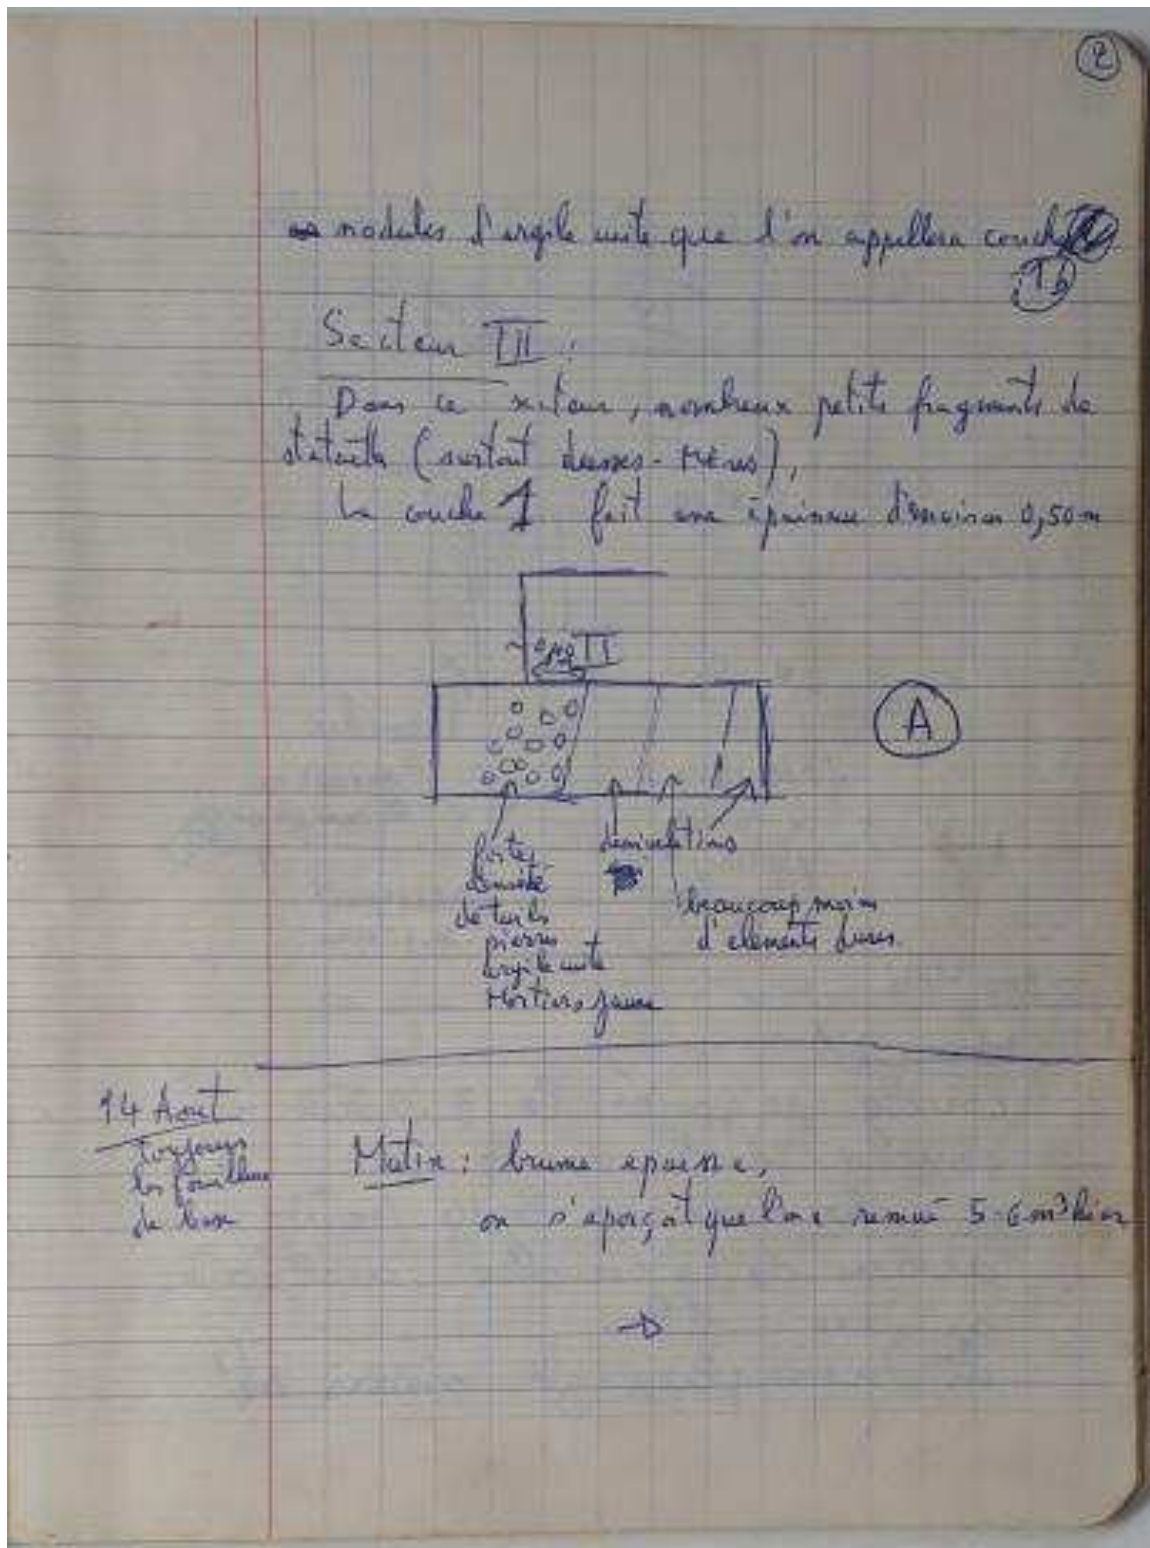 2
nodules d'argile cuite que l'on appellera couche
1b
Secteur III :
Dans ce secteur, nombreux petits fragments de
statuette (surtout deesses-Mères),
La couche 1 fait une épaisseur d'environ 0,50 m
II
A
fortes
densité
de tuiles
pierres
argile cuite
Mortiers jaune
beaucoup moins
d'elements dures.
14 Aout
toujours
les fouilleurs
de base
Matin : brume epaisse,
on s'aperçoit que l'on a remué 5-6 m³ hier
→